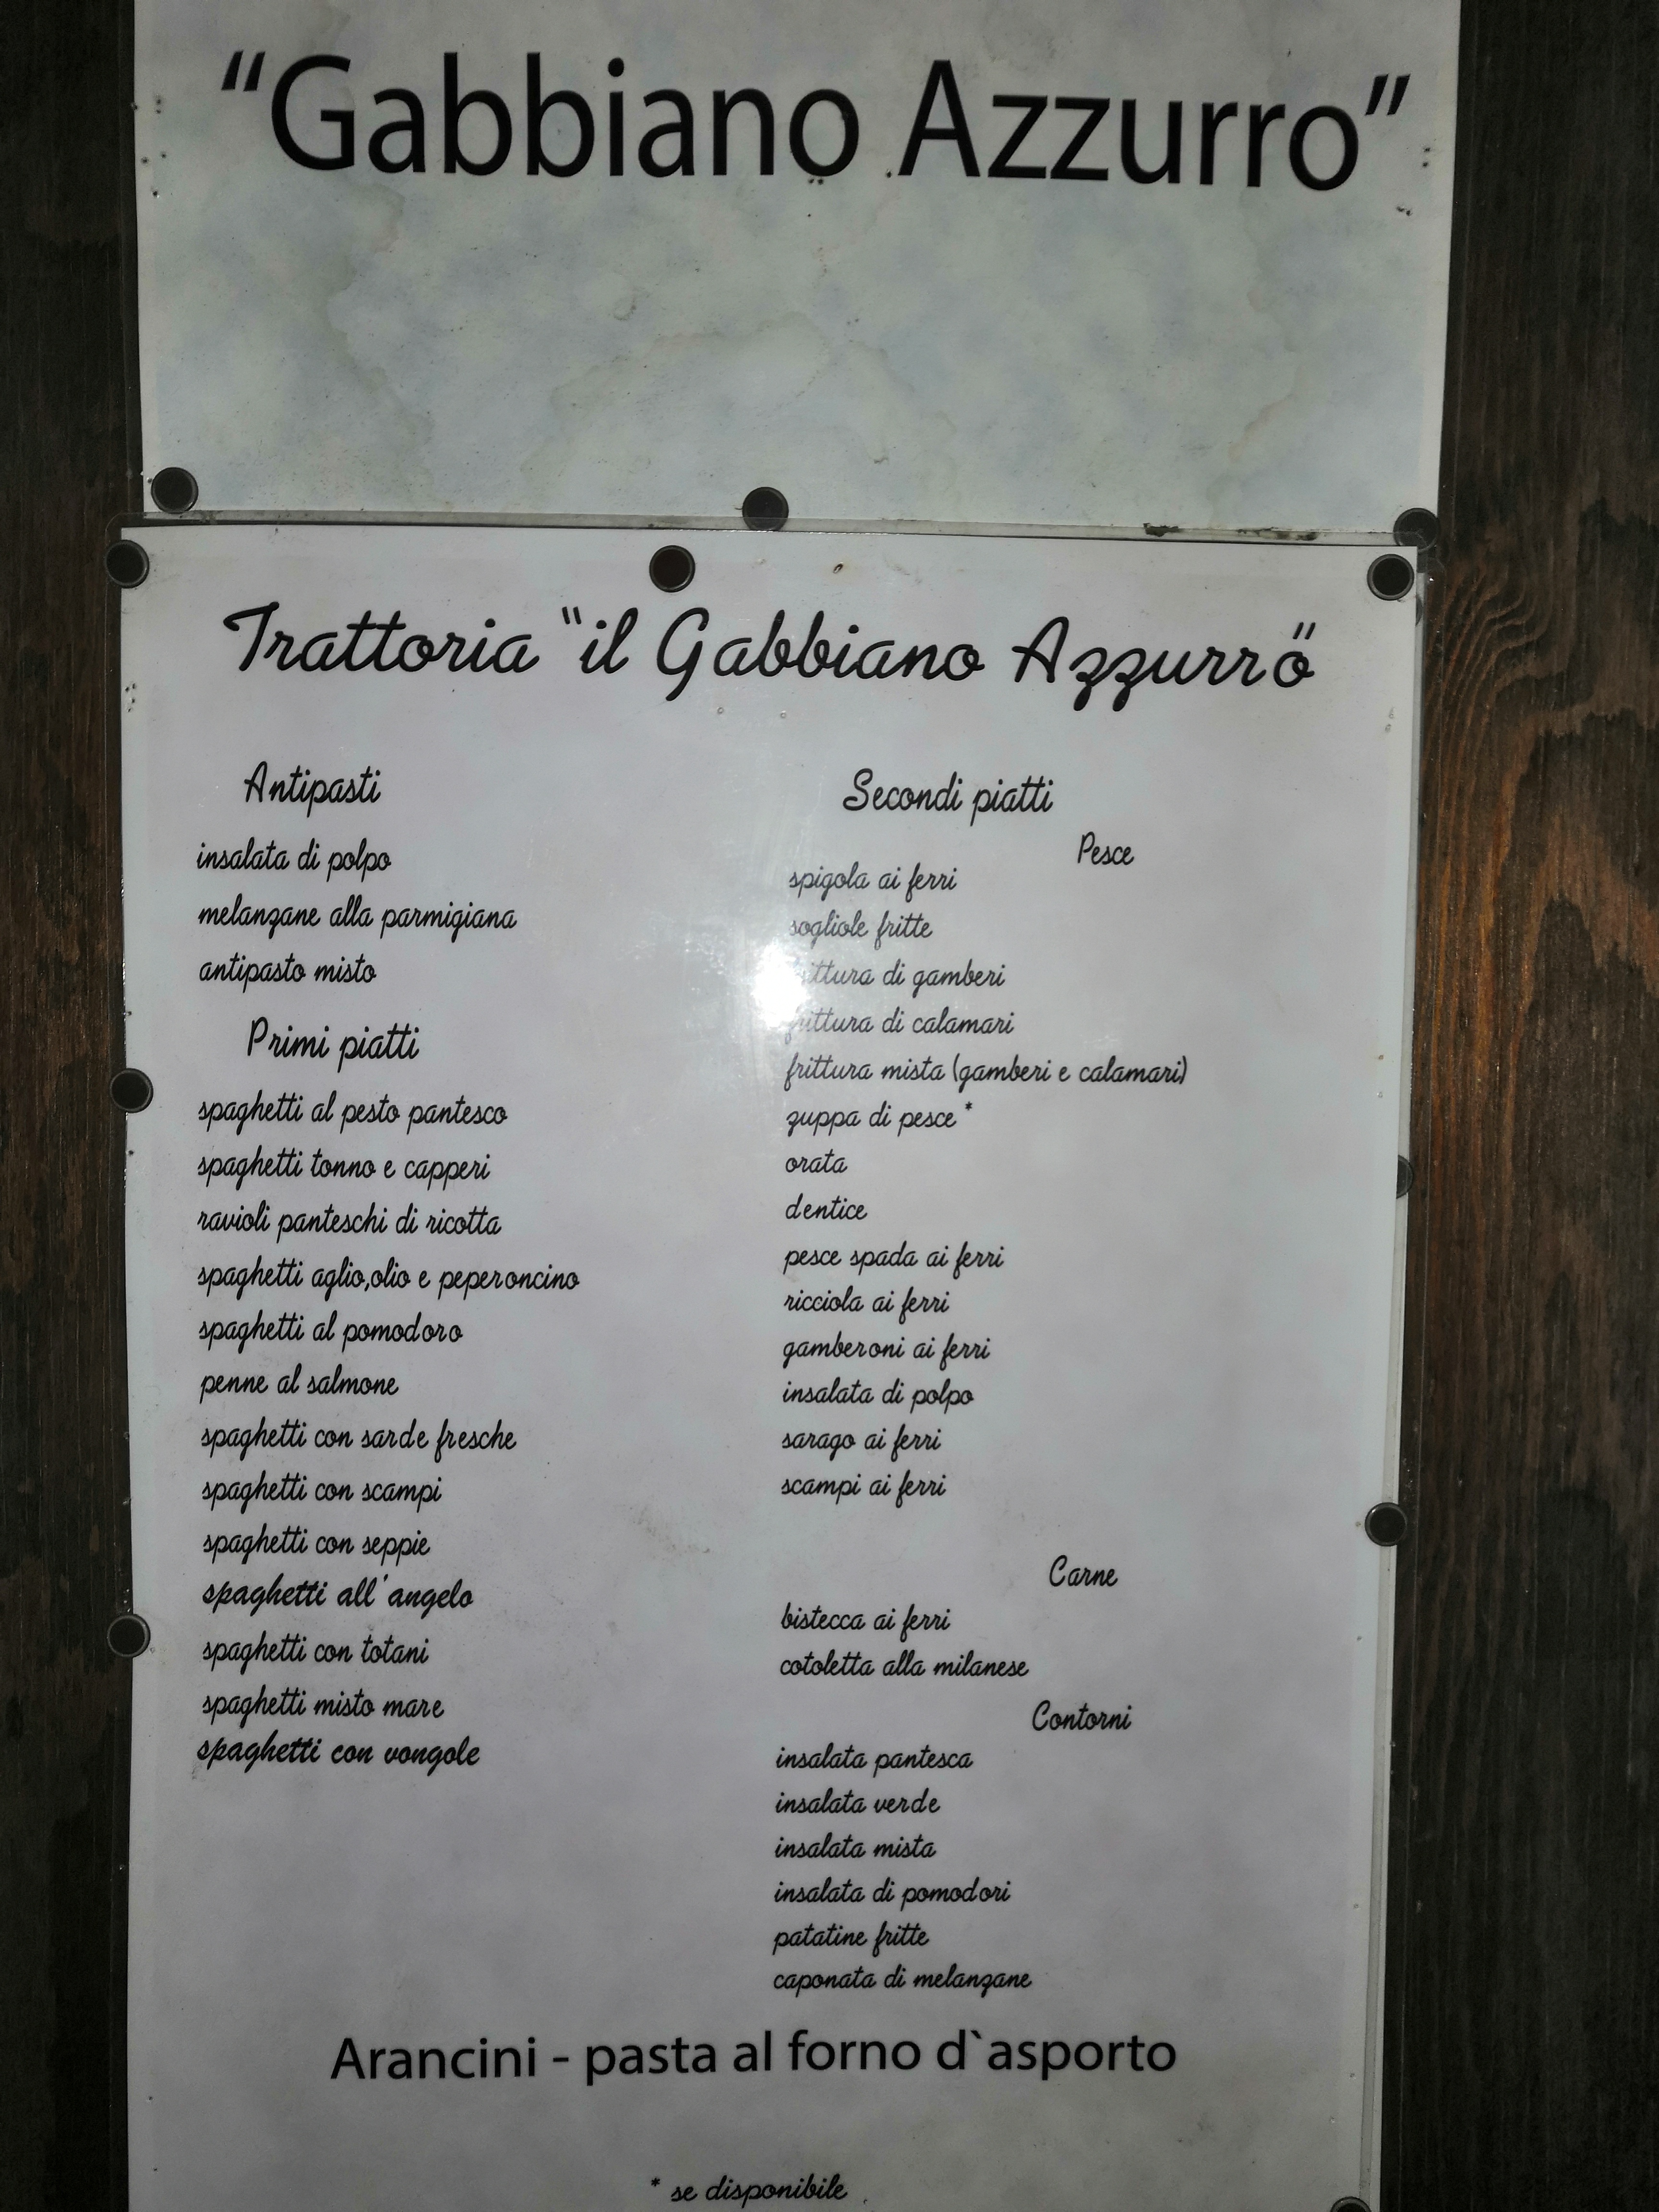 “Gabbiano Azzurro”
Trattoria "il Gabbiano Azzurro"
Antipasti
insalata di polpo
melanzane alla parmigiana
antipasto misto
Primi piatti
spaghetti al pesto pantesco
spaghetti tonno e capperi
ravioli panteschi di ricotta
spaghetti aglio,olio e peperoncino
spaghetti al pomodoro
penne al salmone
spaghetti con sarde fresche
spaghetti con scampi
spaghetti con seppie
spaghetti all'angelo
spaghetti con totani
spaghetti misto mare
spaghetti con vongole
Secondi piatti
Pesce
spigola ai ferri
sogliole fritte
frittura di gamberi
frittura di calamari
frittura mista (gamberi e calamari)
zuppa di pesce *
orata
dentice
pesce spada ai ferri
ricciola ai ferri
gamberoni ai ferri
insalata di polpo
sarago ai ferri
scampi ai ferri
Carne
bistecca ai ferri
cotoletta alla milanese
Contorni
insalata pantesca
insalata verde
insalata mista
insalata di pomodori
patatine fritte
caponata di melanzane
Arancini - pasta al forno d`asporto
* se disponibile